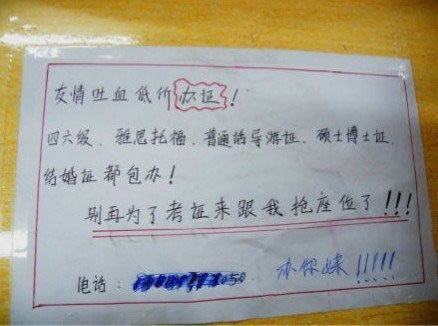 友情吐血低价办证！
四六级、雅思托福、普通话导游证、硕士博士证、
结婚证都包办！
别再为了考证来跟我抢座位了!!!
电话： 050
办你妹!!!!!